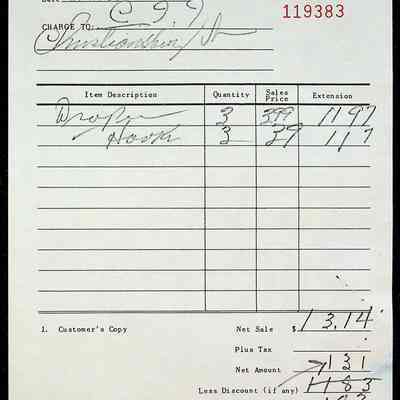 119383
CHARGE TO: C I J
Item Description Quantity Sales Price Extension
Drapes 3 399 1197
Hooks 3 39 117
1. Customer's Copy Net Sale $ 13.14
Plus Tax
Net Amount 131
Less Discount (if any) 1183